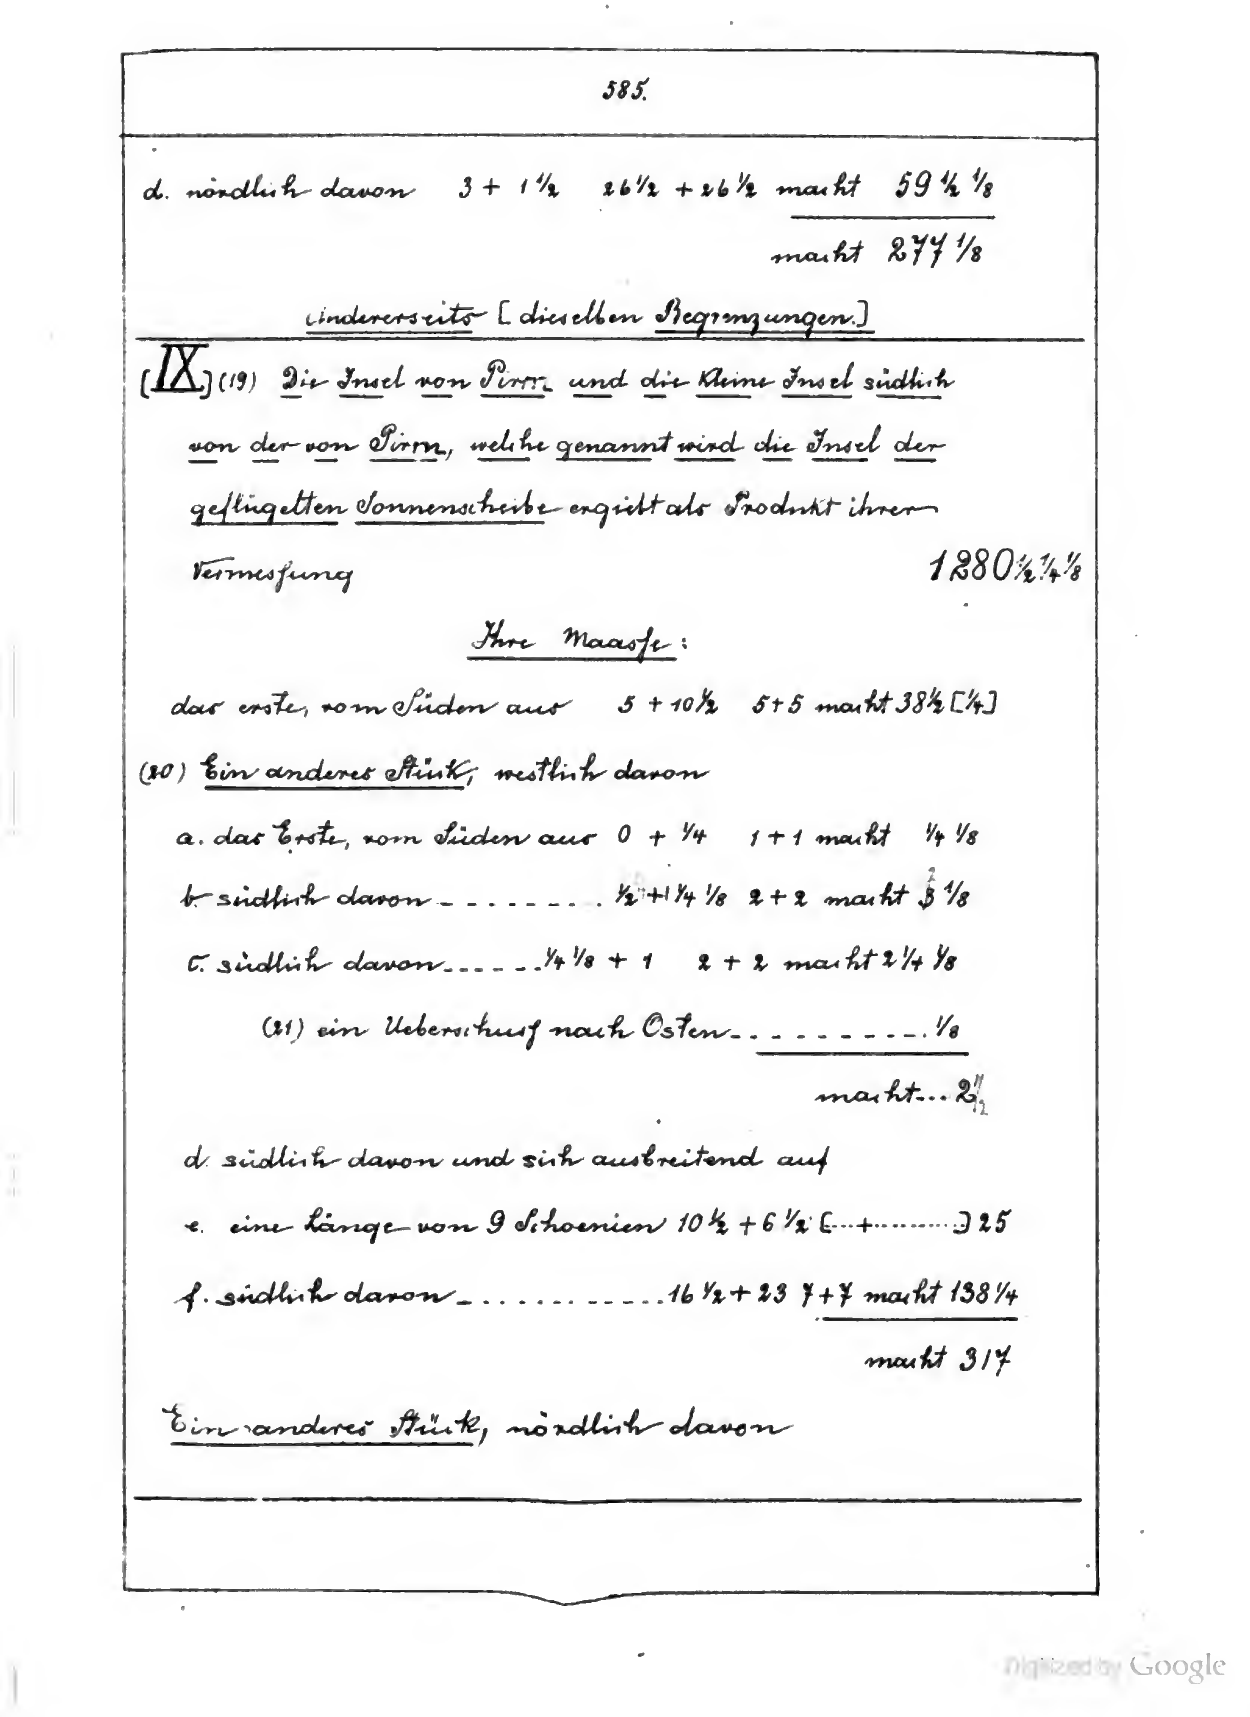 585.
d. nördlich davon 3 + 1 1/2 26 1/2 + 26 1/2 macht 59 1/2 1/8
macht 277 1/8
Andererseits [dieselben Begrenzungen.]
[IX] (19) Die Insel von Pirm und die kleine Insel südlich
von der von Pirm, welche genannt wird die Insel der
geflügelten Sonnenscheibe ergiebt als Produkt ihrer
Vermessung 1280 1/2 1/4 1/8
Ihre Maasse:
das erste, vom Süden aus 5 + 10 1/2 5+5 macht 38 1/2 [1/4]
(20) Ein anderes Stück, westlich davon
a. das Erste, vom Süden aus 0 + 1/4 1+1 macht 1/4 1/8
b. südlich davon - - - - - - - - . 1/2 + 1 1/4 1/8 2+2 macht 3 1/8
2
c. südlich davon - - - - - - . 1/4 1/8 + 1 2 + 2 macht 2 1/4 1/8
(21) ein Ueberschuss nach Osten - . - - - - - - - . 1/8
macht... 2 1/2
d. südlich davon und sich ausbreitend auf
e. eine Länge von 9 Schoenien 10 1/2 + 6 1/2 [...+.........] 25
f. südlich davon - . . . . . - - - - - . 16 1/2 + 23 7+7 macht 138 1/4
macht 317
Ein anderes Stück, nördlich davon
Digitized by Google